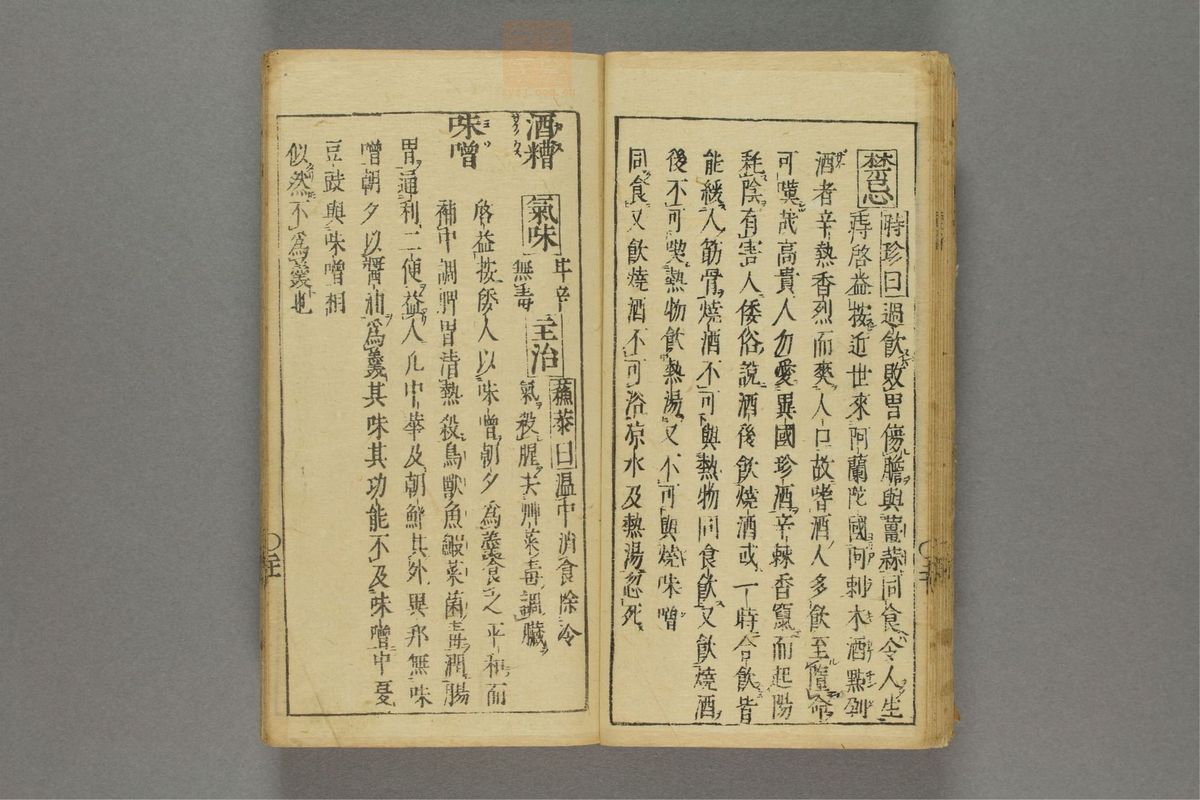 禁忌 時珍曰過飲敗胃傷膽與薑蒜同食令人生
痔啓益按近世來阿蘭陀國阿剌木酒點剉
酒者辛熱香烈而爽人口故嗜酒人多飲至隕命
可嘆哉高貴人勿愛異國珍酒辛辣香竄而起陽
耗陰有害人倭俗說酒後飲燒酒或一時合飲皆
能緩人筋骨燒酒不可與熱物同食飲又飲燒酒
後不可喫熱物飲熱湯又不可與燒味噌
同食又飲燒酒不可浴凉水及熱湯忽死
酒糟 氣味 甘辛無毒 主治 蘇恭曰温中消食除冷
氣殺腥去艸菜毒調臟
味噌 啓益按倭人以味噌朝夕爲羹食之平和而
補中調脾胃清熱殺鳥獸魚鰕菜菌毒潤腸
胃通利二便益人凡中華及朝鮮其外異邦無味
噌朝夕以醤油爲羹其味其功能不及味噌中夏
豆豉與味噌相
似然不爲羹也